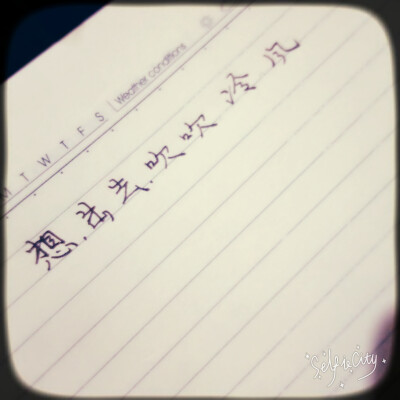 Weather conditions
M T W T F S
想出去吹吹冷风
SelfieCity